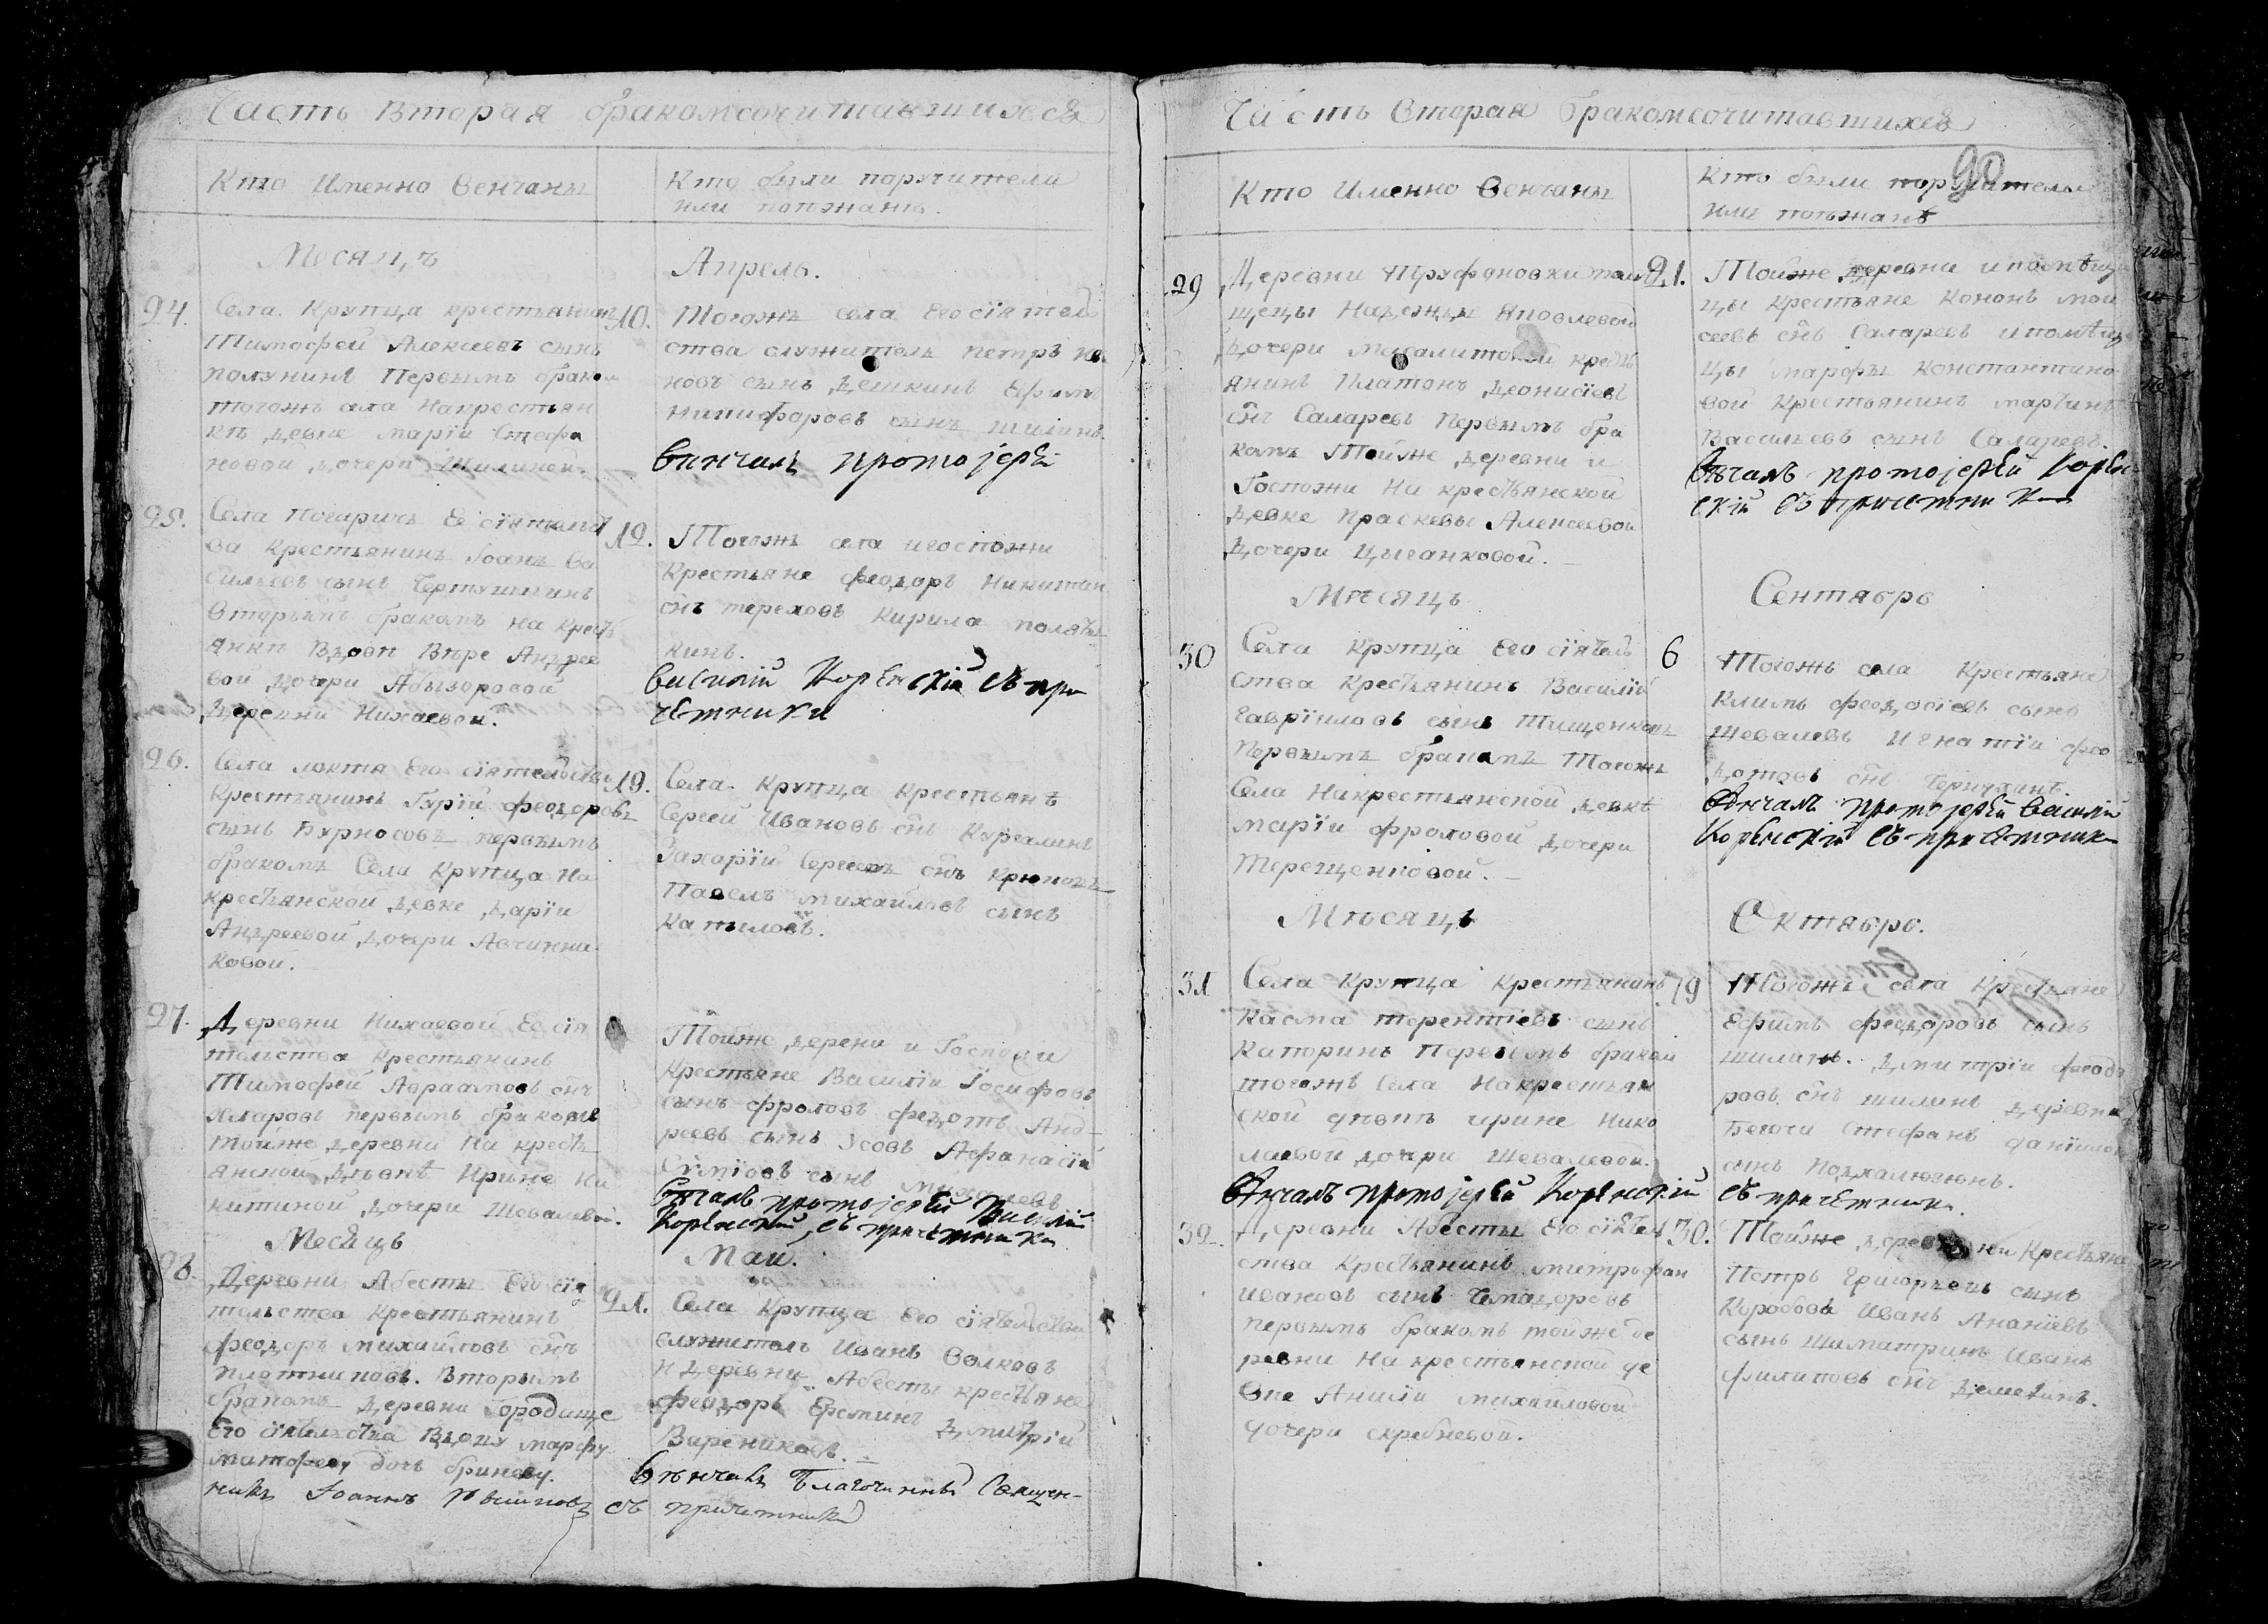 Часть Вторая бракомсочитавшихся
Кто Именно Венчаны
Кто были поручители
или поезжанѣ.
Месяцъ
Апрель.
24.
Села Крупца крестьянинъ
Тимофей Алексеевъ сынъ
полунинъ Первымъ браком
тогожъ села Накрестьян
къ девке марїи Стефа
новой дочери Шилиной.
10.
Тогожъ села Его сїятель
ства служитель петръ
новъ сынъ Дешкинъ Ефимъ
никифоровъ сынъ шилинъ.
венчалъ протоіерѣй
25.
Села Погаричъ Ее сїятельст
ва Крестьянинъ Іоанъ Ва
сильевъ сынъ Чертушкинъ
Вторымъ бракомъ на крестъ
янки Вдове Вѣре Андрее
вой дочери Абызоровой
Деревни Нихаевой.
12.
Тогожъ села игоспожи
Крестьяне феодоръ Никитин
снъ тереховъ Кирила поляш
кинъ.
Василій Коренскій съ при
четники
26.
Села локтя Его сїятельства
Крестьянинъ Гурїй феодоровъ
сынъ Бурносовъ первымъ
бракомъ Села Крупца На
крестьянской девке Дарїи
Андреевой дочери Авчинни
ковой.
19.
Села Крупца Крестьянѣ
Сергей Ивановъ снъ Курсалинъ
Захарїй Сергеевъ снъ Крюковъ
Павелъ михайловъ сынъ
Катыловъ.
27.
Деревни Нихаевой Ее сїя
тельства Крестьянинъ
Тимофей Авраамовъ снъ
первымъ бракомъ
тойже деревни На крестъ
янской дѣвкѣ Ирине Ни
китиной дочери Шевалевой.
Тойже дерени и Госпожи
Крестьяне Василїи Іосифовъ
сынъ фроловъ федотъ Анд
реевъ сынъ Усовъ Афанасїй
сынъ
Вѣнчалъ протоіерѣй Василій
Коренский съ причетники
Месяцъ
Май.
28.
Деревни Абесты Его сїя
тельства Крестьянинъ
феодоръ михайловъ снъ
Плотниковъ. Вторымъ
бракамъ Деревни Городище
Его сїятельства Вдову марфу
матфееву дочь бриневу.
21.
Села Крупца Его сїятельства
служитель Иванъ Волковъ
и Деревни Абесты крестьяне
феодоръ Ереминъ Дмитрїй
Вареников.
Вѣнчалъ Благочинный Священ-
никъ Іоаннъ съ причетники
Часть Вторая Бракомсочитавшихся
90
Кто Именно Венчаны
Кто были поручители
или поезжанѣ
29
Деревни Труфановки пом
щецы Надежды Яковлевой
Дочери крестъ
янинъ Платонъ Деонисїевъ
снъ Саларевъ Первымъ бра
комъ Тойже деревни и
Госпожи На крестьянской
Девке Праскевы Алексеевой
Дочери Цыганковой.
21.
Тойже деревни ипомѣщи
цы крестьяне Кононъ мои
сеевъ снъ Саларевъ ипомѣщи
цы марфы Константино
вой Крестьянинъ мартинъ
Васильевъ сынъ Саларевъ.
Вѣнчалъ протоіерѣй Корен
скій съ причетники
Мѣсяцъ
Сентябрь
30
Села Крупца Его сїятель
ства Крестьянинъ Василїй
Гаврїиловъ сынъ Тищенковъ
Первымъ бракамъ Тогожъ
Села Накрестьянской девкѣ
марїи фроловой дочери
Терещенковой.
6
Тогожъ села Крестьяне
Климъ феодосїевъ сынъ
Шевалевъ Игнатїи фео
дотовъ снъ
Вѣнчалъ протоіерѣй Василій
Коренский съ причетники
Мѣсяцъ
Октябрь.
31
Села Крупца Крестьянинъ
Касма терентїевъ сынъ
Каторинъ Первымъ бракам
тогожъ Села Накрестьян
ской дѣвкѣ ирине Нико
лаевой дочери Шевалевой.
19
Тогожъ села Крестьяне
Ефимъ феодоровъ сынъ
шилинъ. Дмитрїи феодо
ровъ снъ шилинъ деревни
Бегочи Стефанъ данїилов
сынъ Подхалюзюнъ.
Вѣнчалъ протоіерѣй Коренскій съ причетники.
32
Деревни Абесты Его сїятел
ства Крестьянинъ митрофан
ивановъ сынъ Чемадоровъ
первымъ бракомъ тойже де
ревни На крестьянской де
вке Анисїи михайловой
дочери скребневой.
30.
Тойже деревни Крестьяне
Петръ Григорьевъ сынъ
Коробовъ Иванъ Ананїевъ
сынъ Шиматринъ Иванъ
филиповъ снъ Демехинъ.